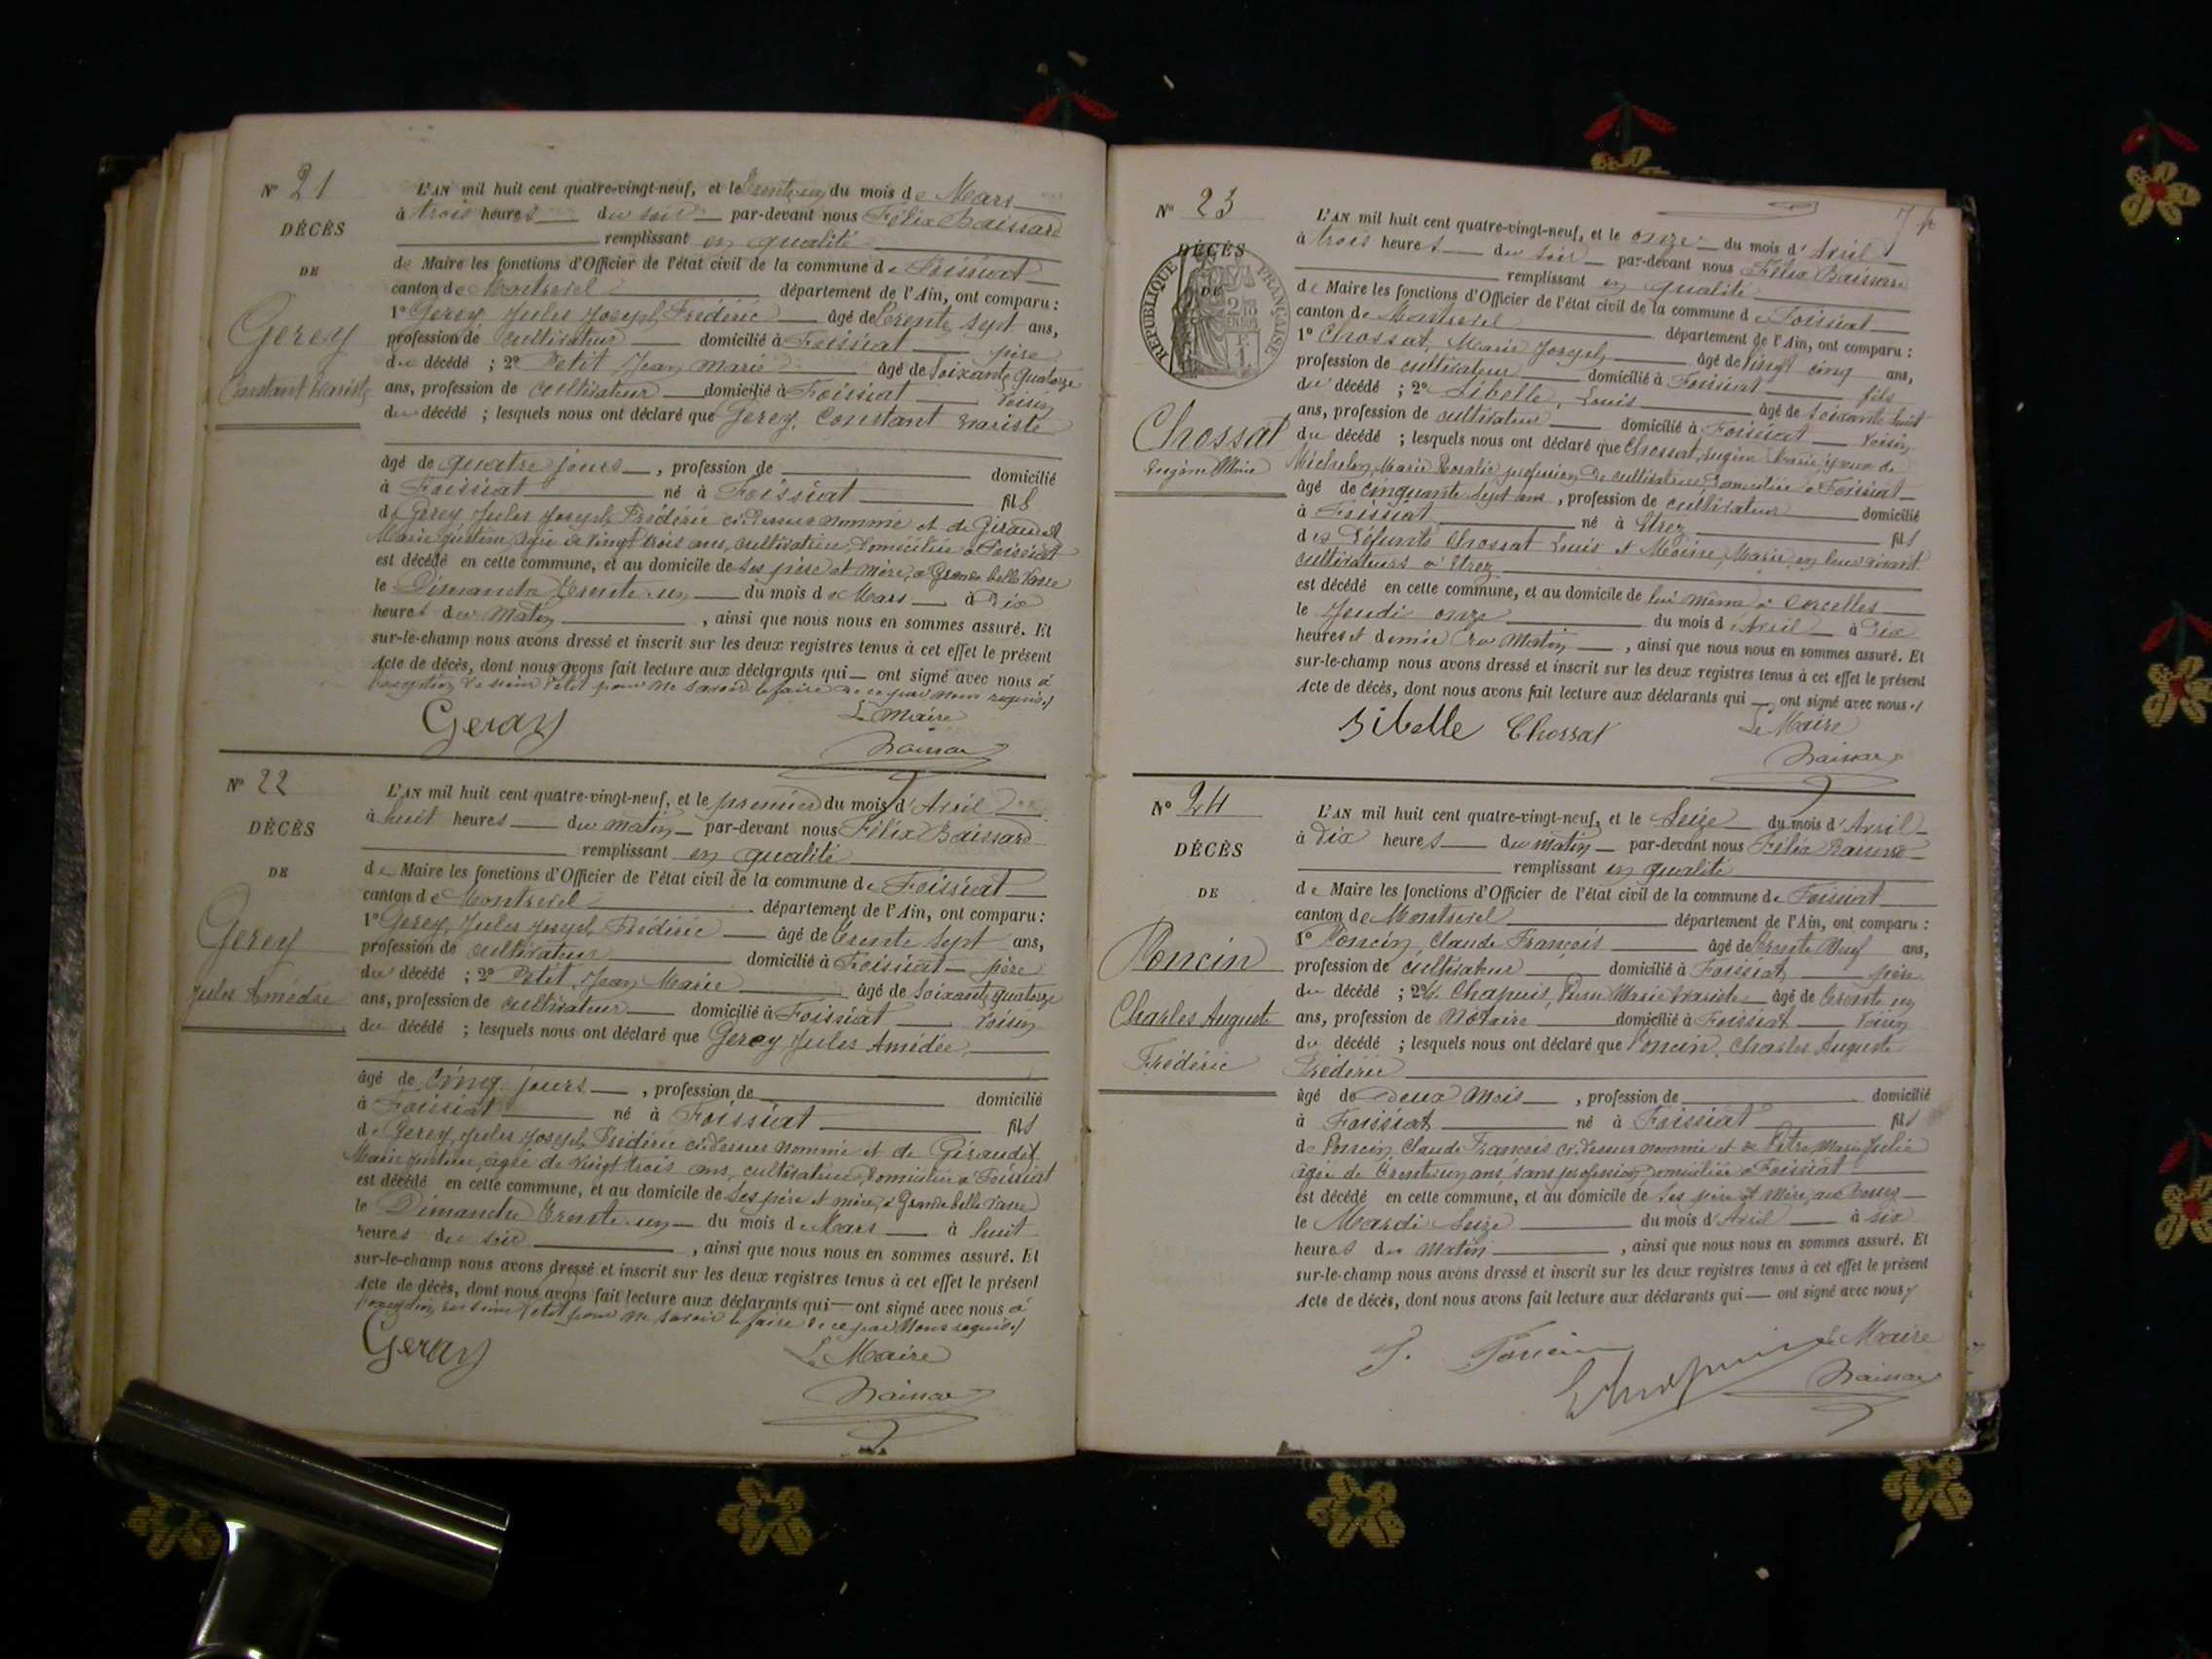 N° 21
DÉCÈS
DE
Gerey
Constant Evariste
L'AN mil huit cent quatre-vingt-neuf, et le Trente un du mois de Mars
à trois heures du soir par-devant nous Félix Baissard
remplissant en qualité
de Maire les fonctions d'Officier de l'état civil de la commune de Foissiat
canton de Montrevel département de l'Ain, ont comparu :
1° Gerey Jules Joseph Frédéric âgé de Trente sept ans,
profession de cultivateur domicilié à Foissiat père
du décédé ; 2° Petit Jean Marie âgé de Soixante quatorze
ans, profession de cultivateur domicilié à Foissiat voisin
du décédé ; lesquels nous ont déclaré que Gerey, Constant Evariste
âgé de quatre jours, profession de domicilié
à Foissiat né à Foissiat fils
de Gerey Jules Joseph Frédéric ci-dessus nommé et de Giraudet
Marie Justine, âgée de vingt trois ans, cultivatrice, domiciliée à Foissiat
est décédé en cette commune, et au domicile de ses père et mère, à Grande belle Vavre
le Dimanche Trente un du mois de Mars à Dix
heures du Matin, ainsi que nous nous en sommes assuré. Et
sur-le-champ nous avons dressé et inscrit sur les deux registres tenus à cet effet le présent
Acte de décès, dont nous avons fait lecture aux déclarants qui ont signé avec nous à
l'exception de sieur Petit pour ne savoir le faire de ce par nous requis
Le Maire
Gerey
Baissard
N° 22
DÉCÈS
DE
Gerey
Jules Amédée
L'AN mil huit cent quatre-vingt-neuf, et le premier du mois d'Avril
à huit heures du matin par-devant nous Félix Baissard
remplissant en qualité
de Maire les fonctions d'Officier de l'état civil de la commune de Foissiat
canton de Montrevel département de l'Ain, ont comparu :
1° Gerey, Jules Joseph Frédéric âgé de Trente sept ans,
profession de cultivateur domicilié à Foissiat père
du décédé ; 2° Petit, Jean Marie âgé de Soixante quatorze
ans, profession de cultivateur domicilié à Foissiat voisin
du décédé ; lesquels nous ont déclaré que Gerey Jules Amédée
âgé de Cinq jours, profession de domicilié
à Foissiat né à Foissiat fils
de Gerey, Jules Joseph Frédéric ci-dessus nommé et de Giraudet
Marie Justine, âgée de vingt trois ans, cultivatrice, domiciliée à Foissiat
est décédé en cette commune, et au domicile de ses père et mère, à Grande belle Vavre
le Dimanche Trente un du mois de Mars à huit
heures du soir, ainsi que nous nous en sommes assuré. Et
sur-le-champ nous avons dressé et inscrit sur les deux registres tenus à cet effet le présent
Acte de décès, dont nous avons fait lecture aux déclarants qui ont signé avec nous à
l'exception du sieur Petit pour ne savoir le faire de ce par nous requis
Gerey
Le Maire
Baissard
N° 23
DÉCÈS
DE
RÉPUBLIQUE FRANÇAISE
Chossat
Eugène Marie
L'AN mil huit cent quatre-vingt-neuf, et le onze du mois d'Avril
à trois heures du soir par-devant nous Félix Baissard
remplissant en qualité
de Maire les fonctions d'Officier de l'état civil de la commune de Foissiat
canton de Montrevel département de l'Ain, ont comparu :
1° Chossat, Marie Joseph âgé de vingt cinq ans,
profession de cultivateur domicilié à Foissiat fils
du décédé ; 2° Sibelle, Louis âgé de soixante huit
ans, profession de cultivateur domicilié à Foissiat voisin
du décédé ; lesquels nous ont déclaré que Chossat, Eugène Marie, époux de
Michelon, Marie Rosalie profession de cultivatrice domiciliée à Foissiat
âgé de cinquante sept ans, profession de cultivateur domicilié
à Foissiat né à Etrez fils
des défunts Chossat Louis et Moine, Marie en leur vivant
cultivateurs à Etrez
est décédé en cette commune, et au domicile de lui même à Corcelles
le Jeudi onze du mois d'Avril à Dix
heures et demie du Matin, ainsi que nous nous en sommes assuré. Et
sur-le-champ nous avons dressé et inscrit sur les deux registres tenus à cet effet le présent
Acte de décès, dont nous avons fait lecture aux déclarants qui ont signé avec nous
Sibelle Chossat
Le Maire
Baissard
N° 24
DÉCÈS
DE
Poncin
Charles Auguste
Frédéric
L'AN mil huit cent quatre-vingt-neuf, et le Seize du mois d'Avril
à Dix heures du matin par-devant nous Félix Baissard
remplissant en qualité
de Maire les fonctions d'Officier de l'état civil de la commune de Foissiat
canton de Montrevel département de l'Ain, ont comparu :
1° Poncin, Claude François âgé de Trente Neuf ans,
profession de cultivateur domicilié à Foissiat père
du décédé ; 2° Chapuis, Marie Evariste âgé de Trente un
ans, profession de Notaire domicilié à Foissiat voisin
du décédé ; lesquels nous ont déclaré que Poncin, Charles Auguste
Frédéric
âgé de Deux Mois, profession de domicilié
à Foissiat né à Foissiat fils
de Poncin, Claude François ci-dessus nommé et de Marie Julie
âgée de Trente un ans, sans profession, domiciliée à Foissiat
est décédé en cette commune, et au domicile de ses père et mère, au bourg
le Mardi Seize du mois d'Avril à six
heures du Matin, ainsi que nous nous en sommes assuré. Et
sur-le-champ nous avons dressé et inscrit sur les deux registres tenus à cet effet le présent
Acte de décès, dont nous avons fait lecture aux déclarants qui ont signé avec nous
Le Maire
Poncin
Chapuis
Baissard